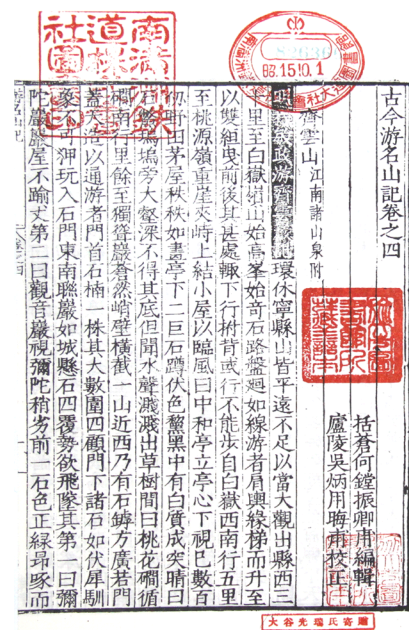 古今游名山記卷之四
括蒼何鏜振卿甫編輯
廬陵吳炳用晦甫校正
齊雲山 江南諸山泉附
環休寧縣山皆平遠不足以當大觀出縣西三
里至白嶽嶺山始高峯始奇石路盤廻如線游者肩輿緣梯而升至
以雙組曳前後其甚處輙下行拊背或行不能步自白嶽西南行五里
至桃源嶺重崖夾峙上結小屋以臨風曰中和亭立亭心下視已數百
仞町田茅屋秩秩如畫亭下二巨石蹲伏色黧黑中有白質成突晴曰
石鷩塢塢旁大壑深不得其底但聞水聲濺濺出草樹間曰桃花磵循
磵南行里餘至獨聳巖蒼然峭壁橫截一山近西乃有石罅方廣若門
蓋天造以通游者門首石楠一株其大數圍四顧門下諸石如伏犀馴
象可狎玩入石門東南聯巖如城懸石四覆勢欲飛墜其第一曰彌
陀巖巖屋不踰丈第二曰觀音巖視彌陀稍劣前一石色正緑昂啄而
88.15.10.1
大谷光瑞氏寄贈